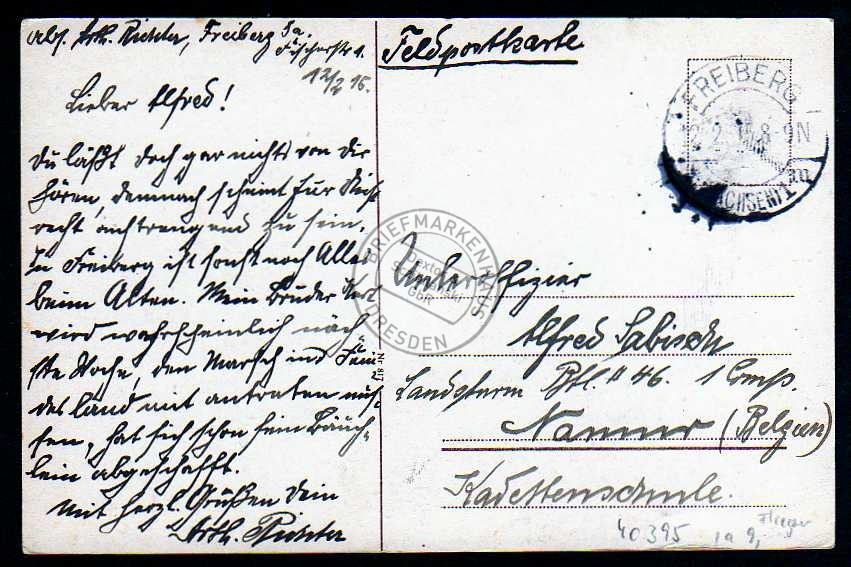 Abs. Arth. Richter, Freiberg Sa.
Fischerstr 1.
12/2 15.
Lieber Alfred!
Du läßt doch gar nichts von Dir
hören, demnach scheint Eur
recht anstrengend zu sein.
In Freiberg ist sonst noch Alles
beim Alten. Mein Bruder Karl
wird wahrscheinlich näch
ste Woche, den Marsch ins Fein
desland mit antreten müs
sen, hat sich schon sein Bäuch-
lein abgeschafft.
Mit herzl. Grüßen Dein
Arth. Richter
Feldpostkarte
FREIBERG
8-9N
(SACHSEN) 1
BRIEFMARKENHAUS
DRESDEN
GbR
Unteroffizier
Alfred Sabisch
Landsturm Btl. 46. 1 Comp.
Namur (Belgien)
Kadettenschule.
Nr. 817
40395
Flieger